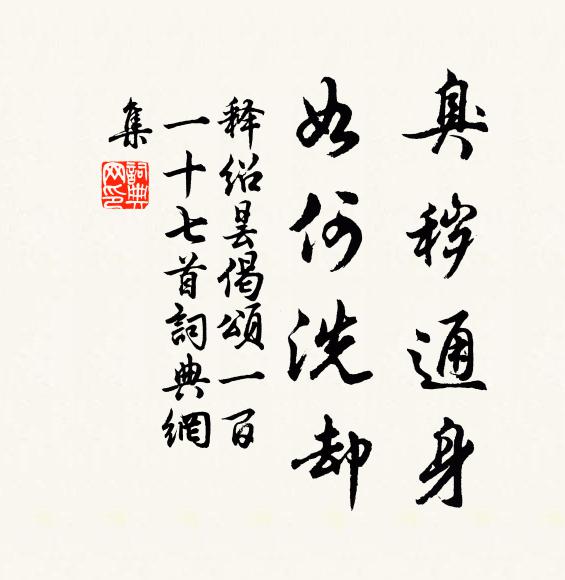 臭秽通身
如何洗却
释绍昙偈颂一百
一十七首詞典網
集
詞典网印